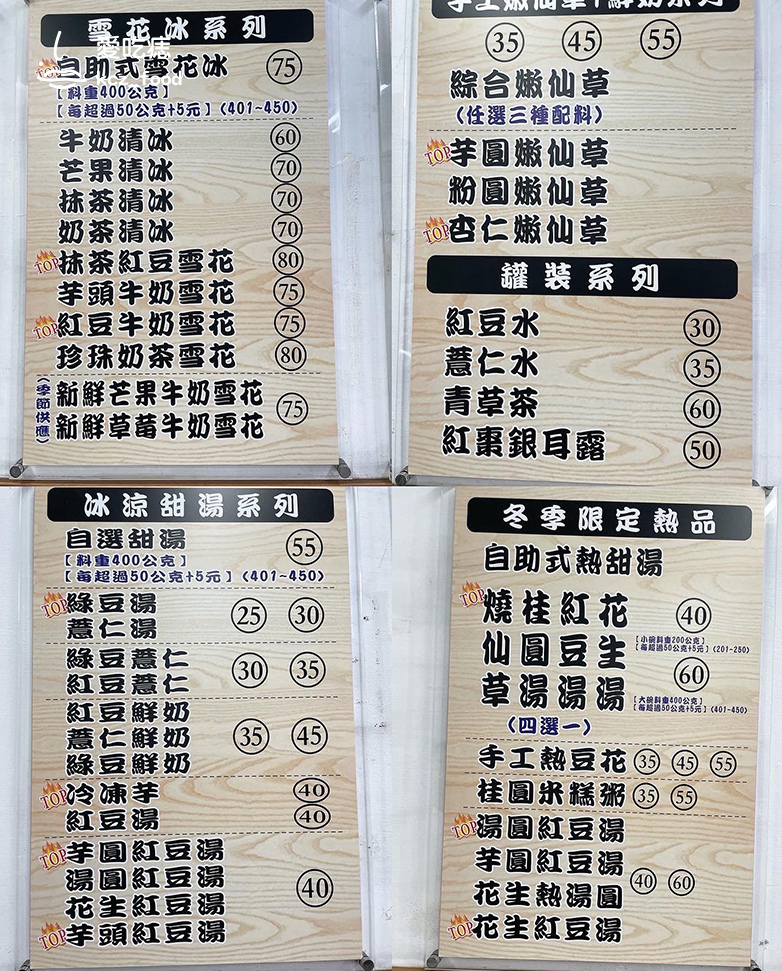 愛吃痞
kcz_food
雪花冰系列
TOP 自助式雪花冰 75
【料重400公克】
【每超過50公克+5元】(401~450)
牛奶清冰 60
芒果清冰 70
抹茶清冰 70
奶茶清冰 70
TOP 抹茶紅豆雪花 80
芋頭牛奶雪花 75
TOP 紅豆牛奶雪花 75
珍珠奶茶雪花 80
(季節供應)
新鮮芒果牛奶雪花 75
新鮮草莓牛奶雪花
手工嫩仙草 鮮奶系列
35 45 55
綜合嫩仙草
(任選三種配料)
TOP 芋圓嫩仙草
粉圓嫩仙草
TOP 杏仁嫩仙草
罐裝系列
紅豆水 30
薏仁水 35
青草茶 60
紅棗銀耳露 50
冰涼甜湯系列
自選甜湯 55
【料重400公克】
【每超過50公克+5元】(401~450)
TOP 綠豆湯 25 30
薏仁湯
綠豆薏仁 30 35
紅豆薏仁
紅豆鮮奶
薏仁鮮奶 35 45
綠豆鮮奶
TOP 冷凍芋 40
紅豆湯 40
TOP 芋圓紅豆湯
湯圓紅豆湯 40
花生紅豆湯
TOP 芋頭紅豆湯
冬季限定熱品
自助式熱甜湯
TOP 燒仙草
桂圓湯
紅豆湯
花生湯
(四選一)
40
【小碗料重200公克】
【每超過50公克+5元】(201~250)
60
【大碗料重400公克】
【每超過50公克+5元】(401~450)
手工熱豆花 35 45 55
桂圓米糕粥 35 55
TOP 湯圓紅豆湯
芋圓紅豆湯 40 60
花生熱湯圓
TOP 花生紅豆湯